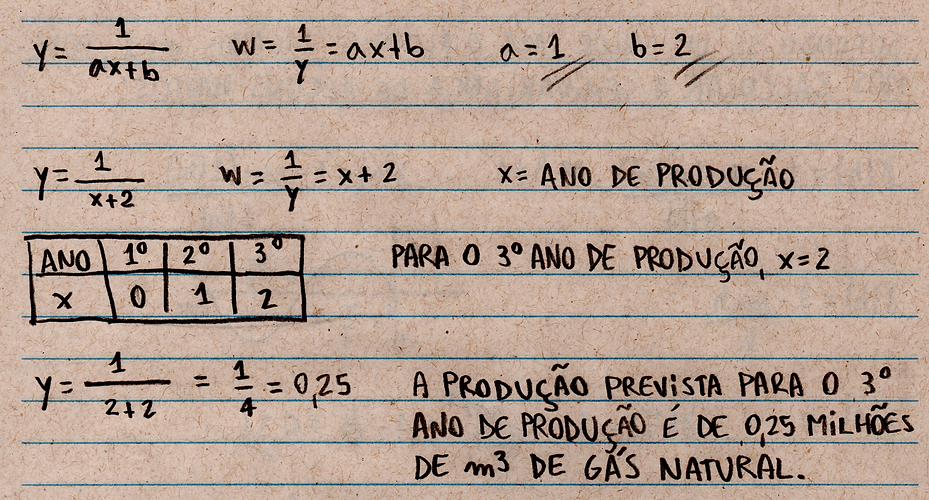 y = 1/(ax+b) w = 1/y = ax+b a = 1 b = 2
y = 1/(x+2) w = 1/y = x + 2 x = ANO DE PRODUÇÃO
ANO 1º 2º 3º
x 0 1 2
PARA O 3º ANO DE PRODUÇÃO, x = 2
y = 1/(2+2) = 1/4 = 0,25
A PRODUÇÃO PREVISTA PARA O 3º
ANO DE PRODUÇÃO É DE 0,25 MILHÕES
DE m³ DE GÁS NATURAL.